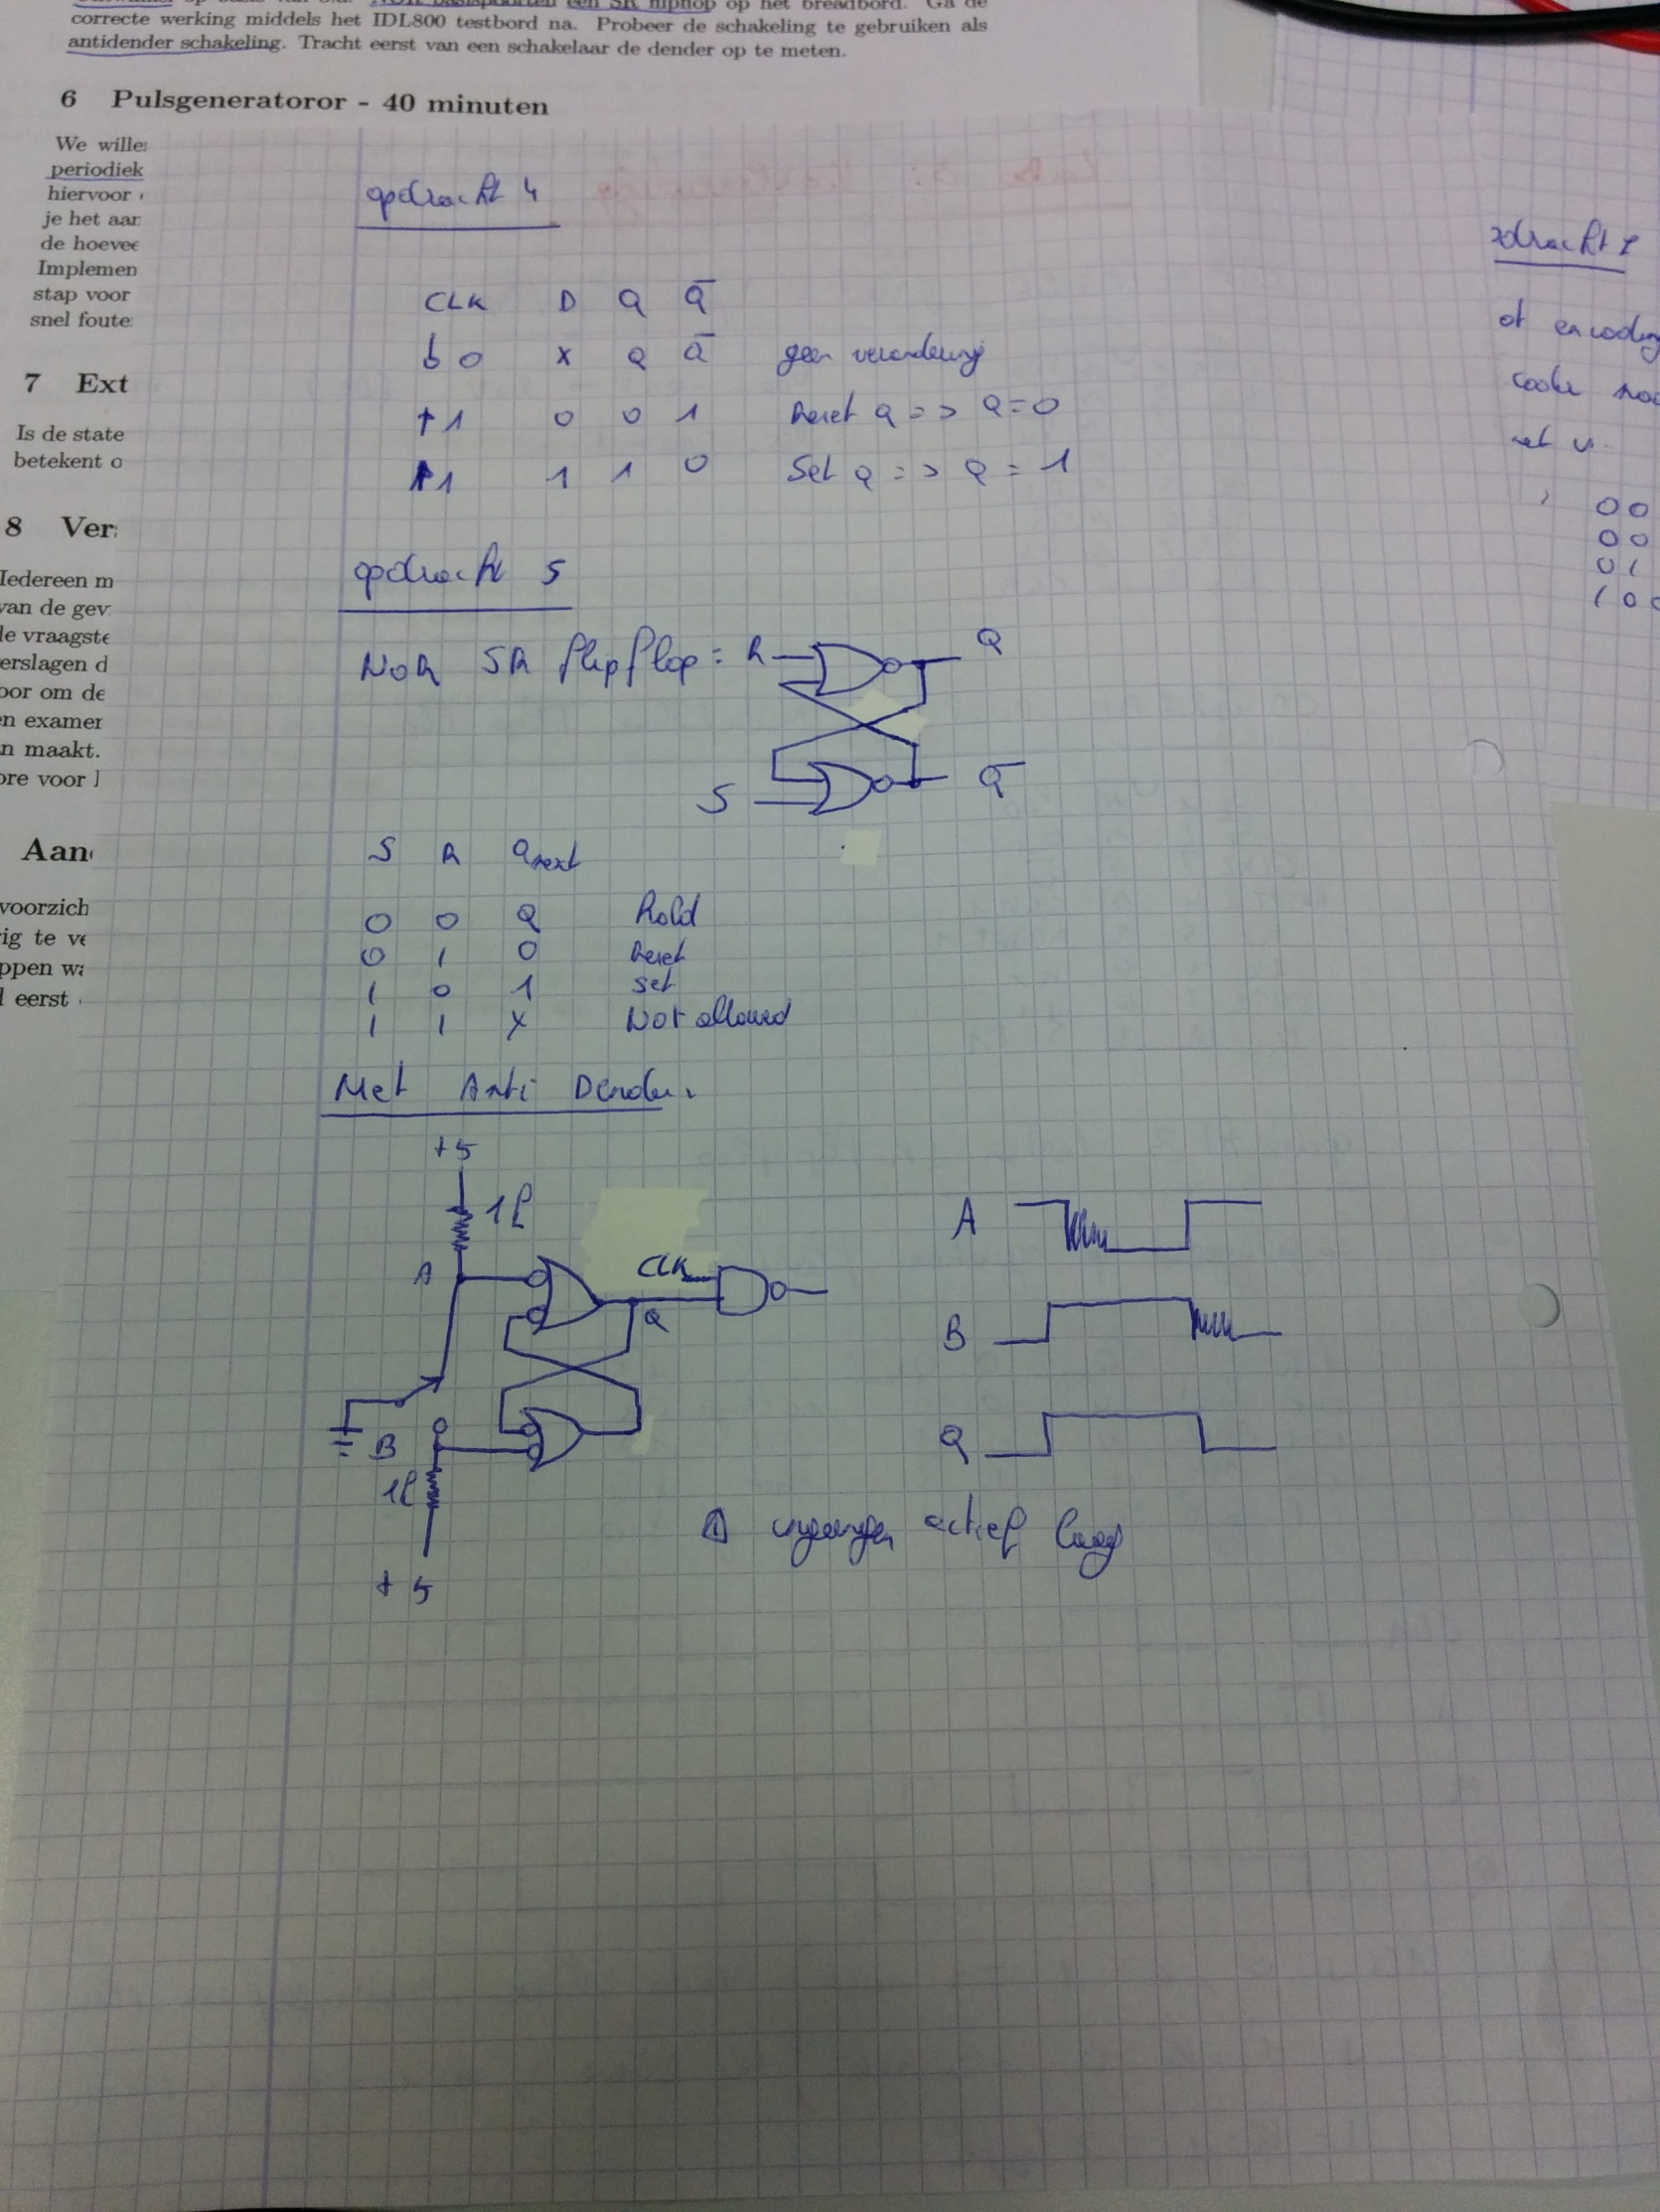 correcte werking middels het IDL800 testbord na. Probeer de schakeling te gebruiken als
antidender schakeling. Tracht eerst van een schakelaar de dender op te meten.
6 Pulsgeneratoror - 40 minuten
We wille
periodiek
hiervoor
je het aan
de hoevee
Implemen
stap voor
snel foute
7 Ext
Is de state
betekent o
8 Ver
Iedereen m
van de gev
le vraagste
erslagen d
oor om de
en examen
n maakt.
ore voor
Aan
voorzich
ig te ve
ppen wa
l eerst
opdracht 4
CLK D Q Q̅
0 X Q Q̅ geen verandering
↑ 1 0 0 1 Reset Q => Q = 0
↑ 1 1 1 0 Set Q => Q = 1
opdracht 5
NOR SR flipflop : R Q
S Q̅
S R Qnext
0 0 Q Hold
0 1 0 Reset
1 0 1 set
1 1 X Not allowed
Met Anti Dender
+5
1k
A
CLK
Q
B
1k
+5
A
B
Q
ingangen actief laag
00
00
01
100